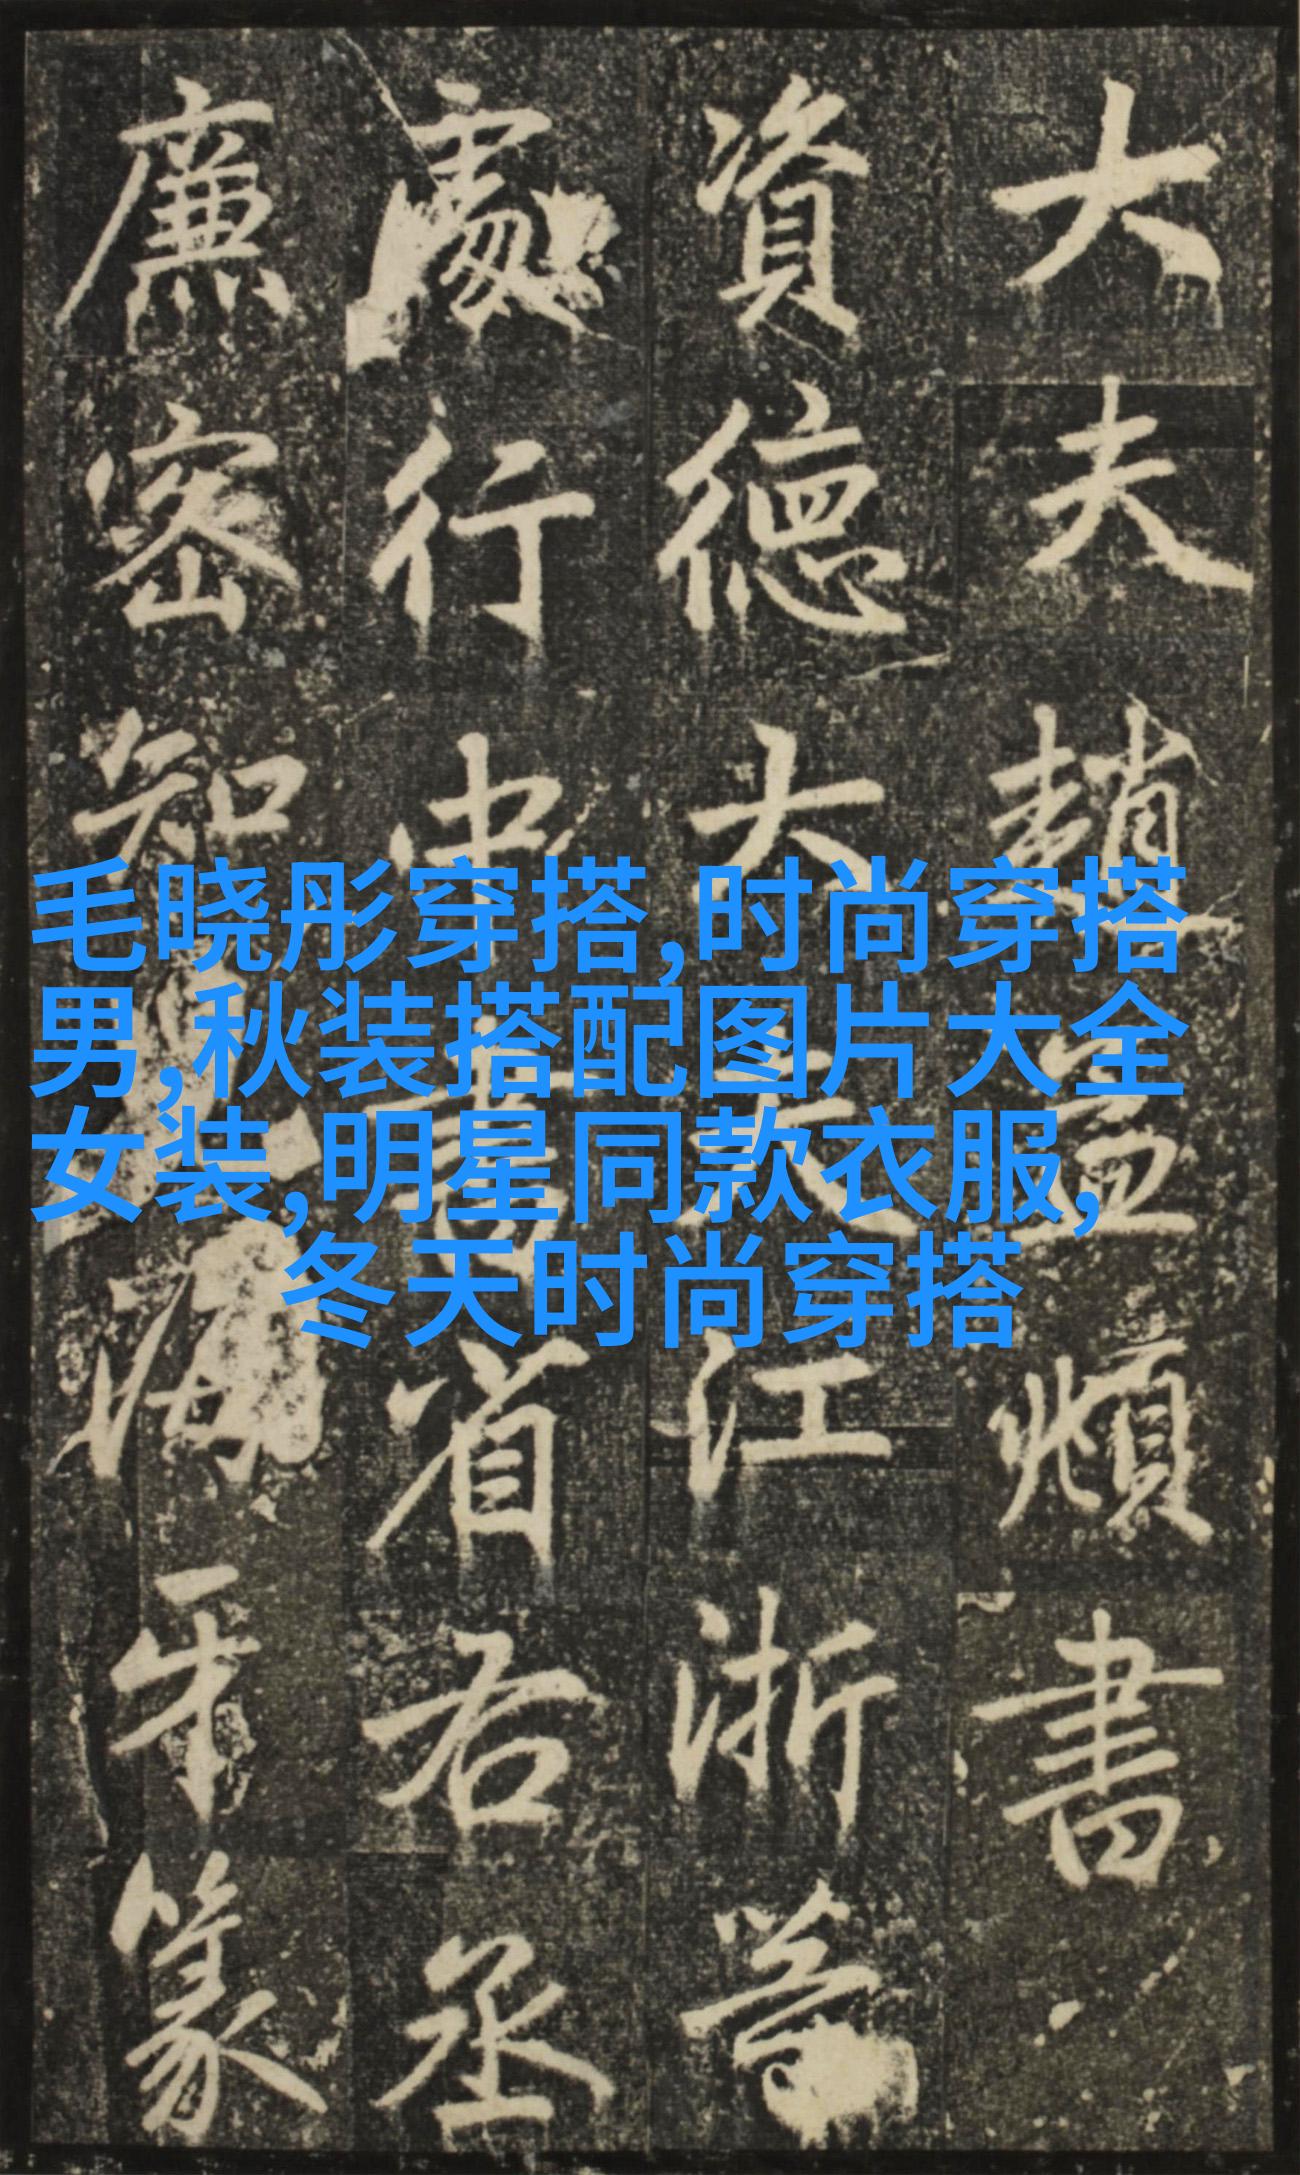 大夫趙孟頫書
資德大夫江浙等
處行中書省右丞
廉密知海牙篆
毛晓彤穿搭,时尚穿搭
男,秋装搭配图片大全
女装,明星同款衣服,
冬天时尚穿搭